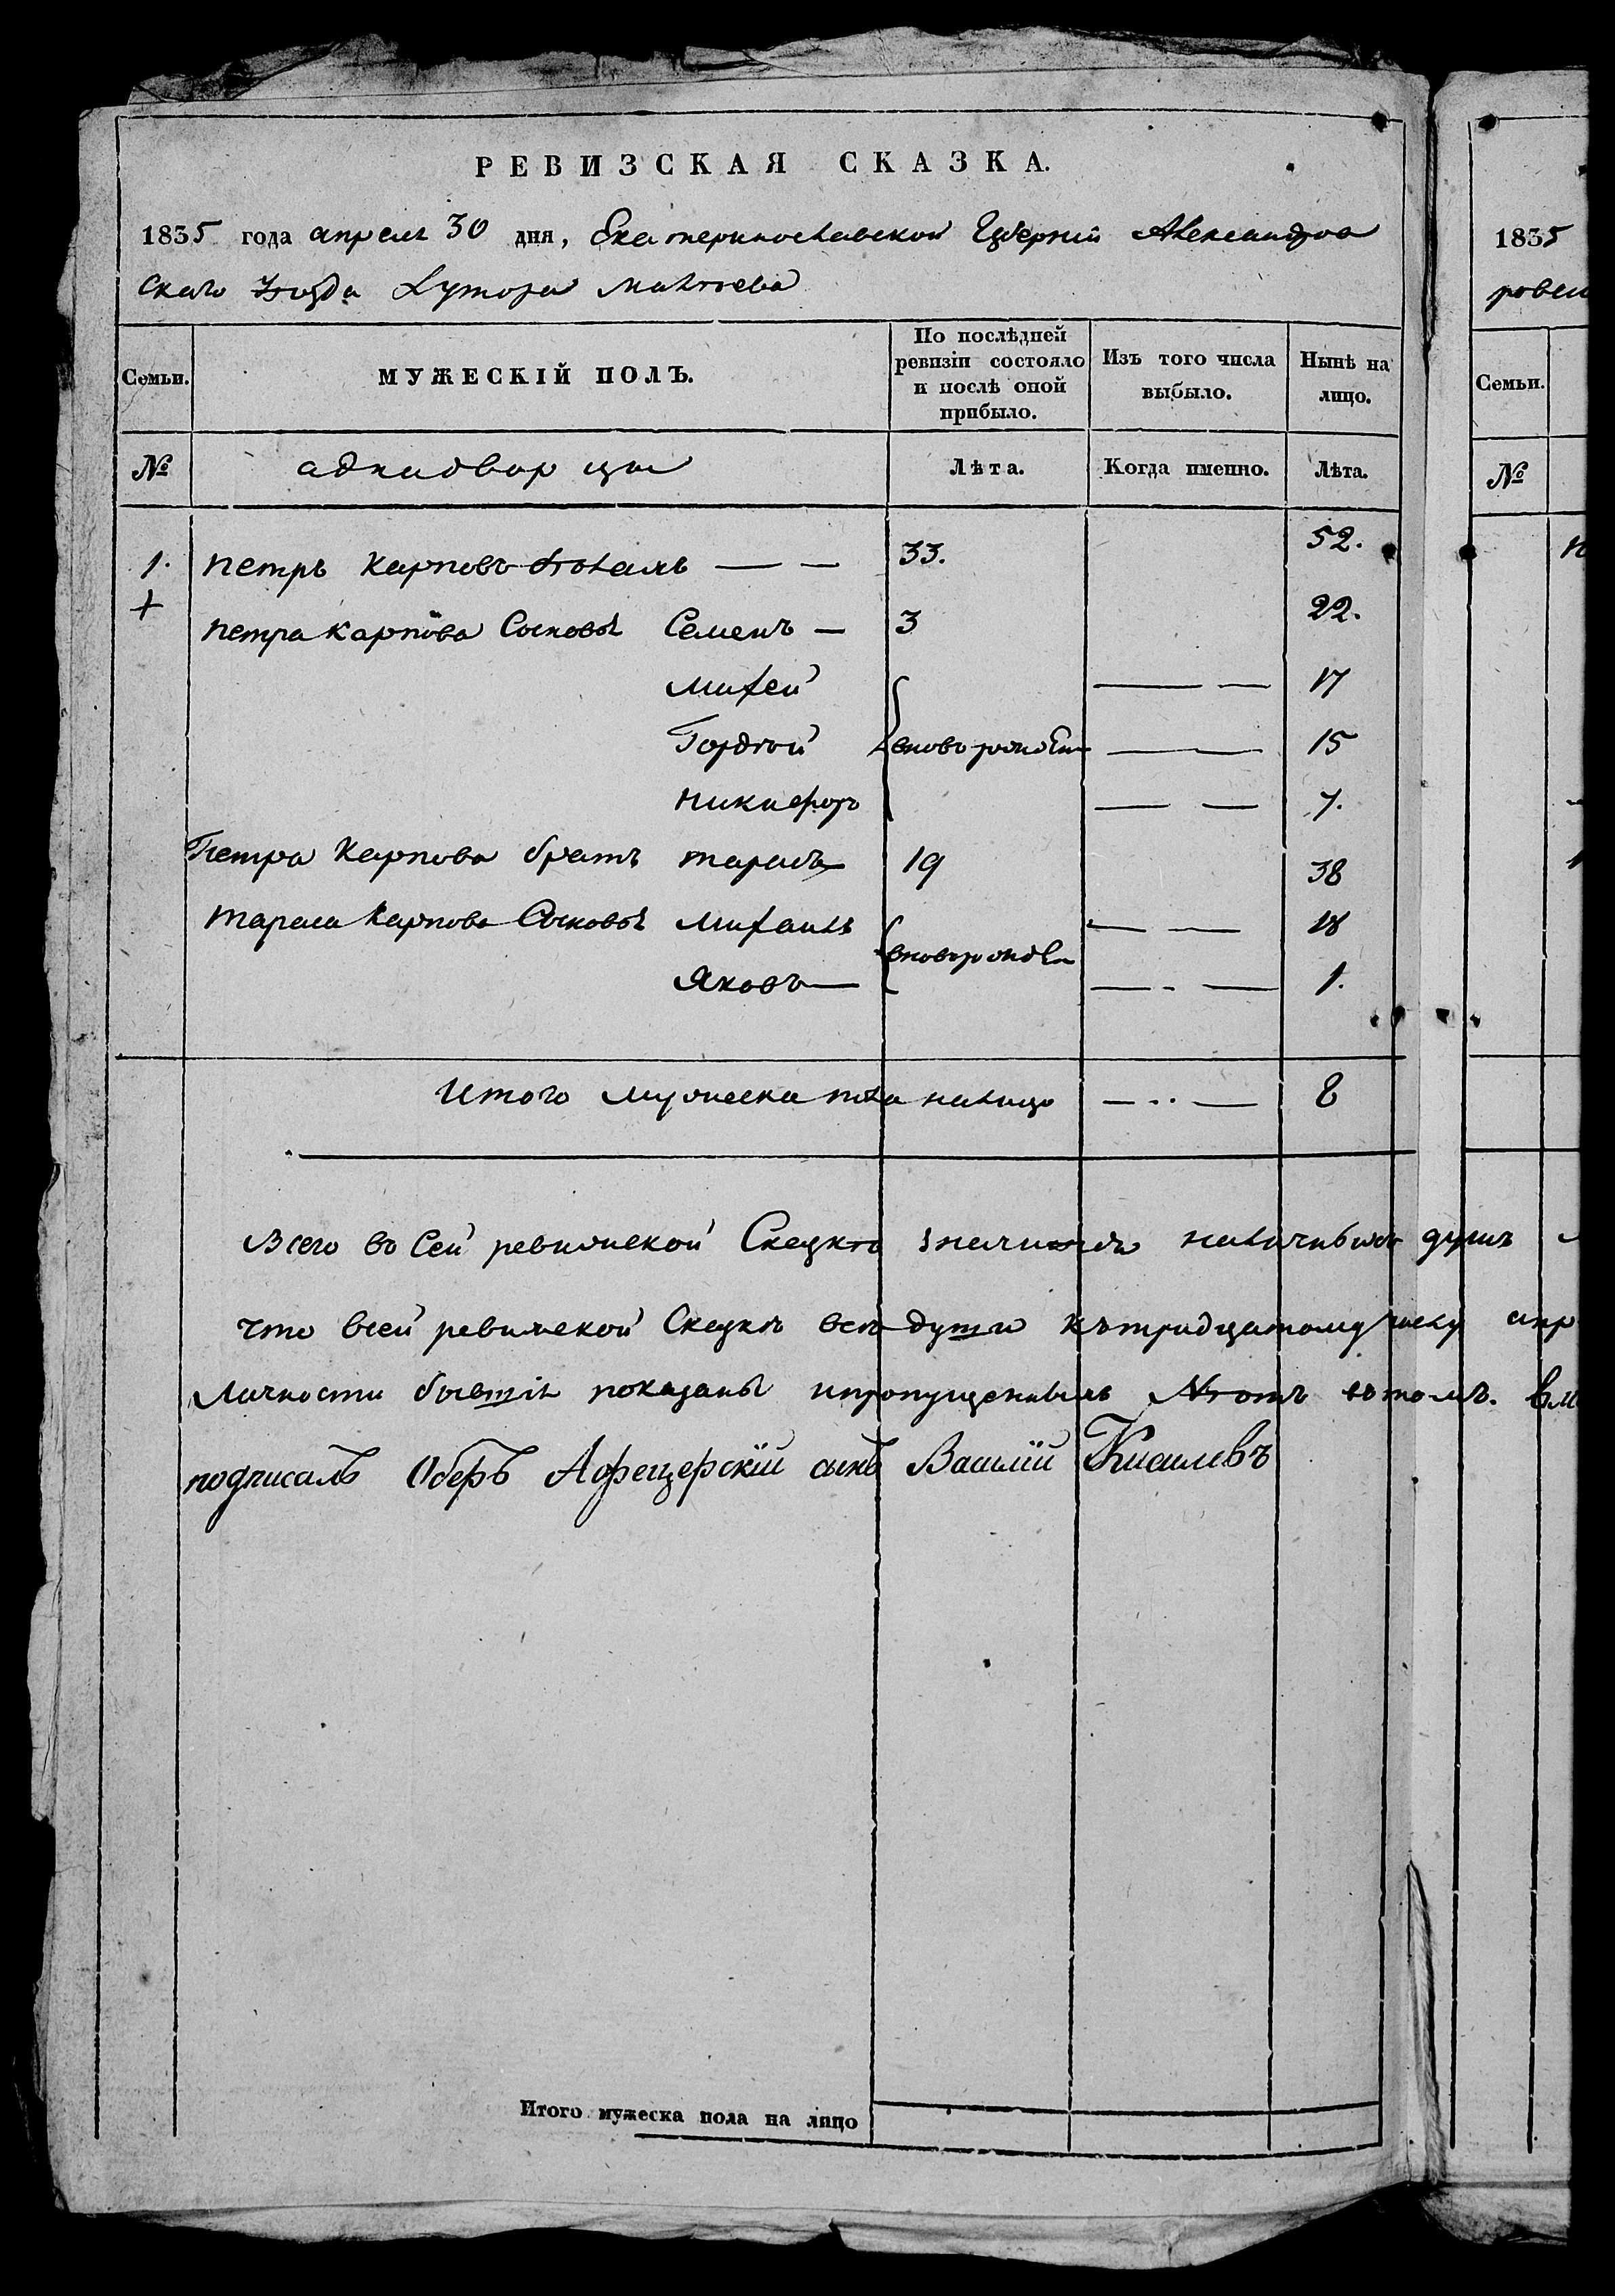 РЕВИЗСКАЯ СКАЗКА.
1835 года апреля 30 дня, Екатеринославской Губернии Александров
скаго уезда Хутора
Семьи. МУЖЕСКІЙ ПОЛЪ. По послѣдней ревизіи состояло и послѣ оной прибыло. Изъ того числа выбыло. Нынѣ на лицо.
№ аднадворцы Лѣта. Когда именно. Лѣта.
1. Петръ Карповъ — — 33. 52.
+ Петра Карпова Сыновя Семенъ — 3 22.
Михей — — 17
Гордѣй вновь рожден — — 15
Никифоръ — — 7.
Петра Карпова братъ тарасъ 19 38
тараса Карпова Сыновя Михаилъ — — 18
вноворожден
Яковъ — — - — 1.
Итого мужеска пола налицо — .. — 8
Всего во Сей ревижской Скаскѣ значится наличныхъ душъ
что всей ревижской Скаскѣ всѣ души къ тридцатому числу апр
личности бывшія показаны и пропущенныхъ Нѣтъ вътомъ.
подписалъ Оберъ Афецерскій сынъ Василій Кисилевъ
Итого мужеска пола на лицо
1835
ровск
Семьи.
№